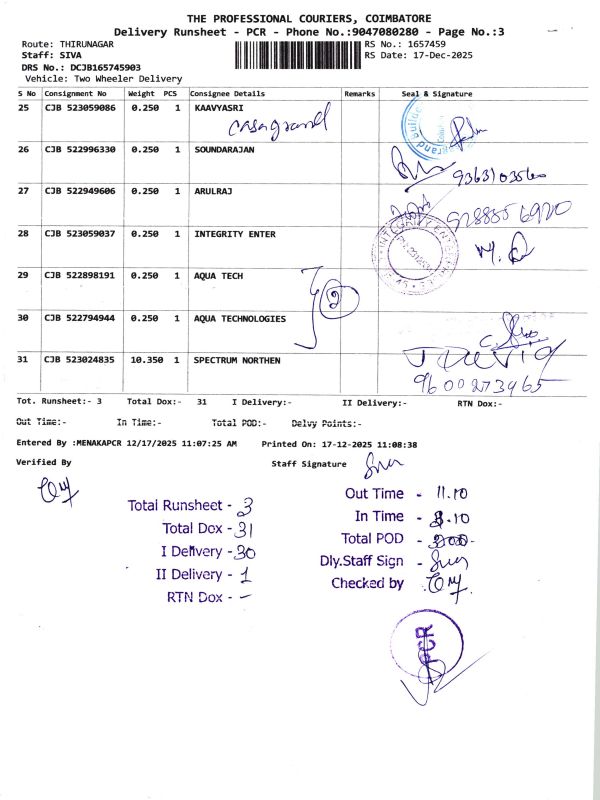 THE PROFESSIONAL COURIERS, COIMBATORE
Delivery Runsheet - PCR - Phone No.:9047080280 - Page No.:3
Route: THIRUNAGAR
Staff: SIVA
DRS No.: DCJB165745903
Vehicle: Two Wheeler Delivery
RS No.: 1657459
RS Date: 17-Dec-2025
S No Consignment No Weight PCS Consignee Details Remarks Seal & Signature
25 CJB 523059086 0.250 1 KAAVYASRI
casagrand
26 CJB 522996330 0.250 1 SOUNDARAJAN
27 CJB 522949606 0.250 1 ARULRAJ
28 CJB 523059037 0.250 1 INTEGRITY ENTER
29 CJB 522898191 0.250 1 AQUA TECH
2
30 CJB 522794944 0.250 1 AQUA TECHNOLOGIES
31 CJB 523024835 10.350 1 SPECTRUM NORTHEN
9600273465
Tot. Runsheet:- 3 Total Dox:- 31 I Delivery:- II Delivery:- RTN Dox:-
Out Time:- In Time:- Total POD:- Delvy Points:-
Entered By :MENAKAPCR 12/17/2025 11:07:25 AM Printed On: 17-12-2025 11:08:38
Verified By
Staff Signature
Total Runsheet - 3
Total Dox - 31
I Delivery - 30
II Delivery - 1
RTN Dox - -
Out Time - 11.10
In Time - 3.10
Total POD -
Dly.Staff Sign -
Checked by
PCR